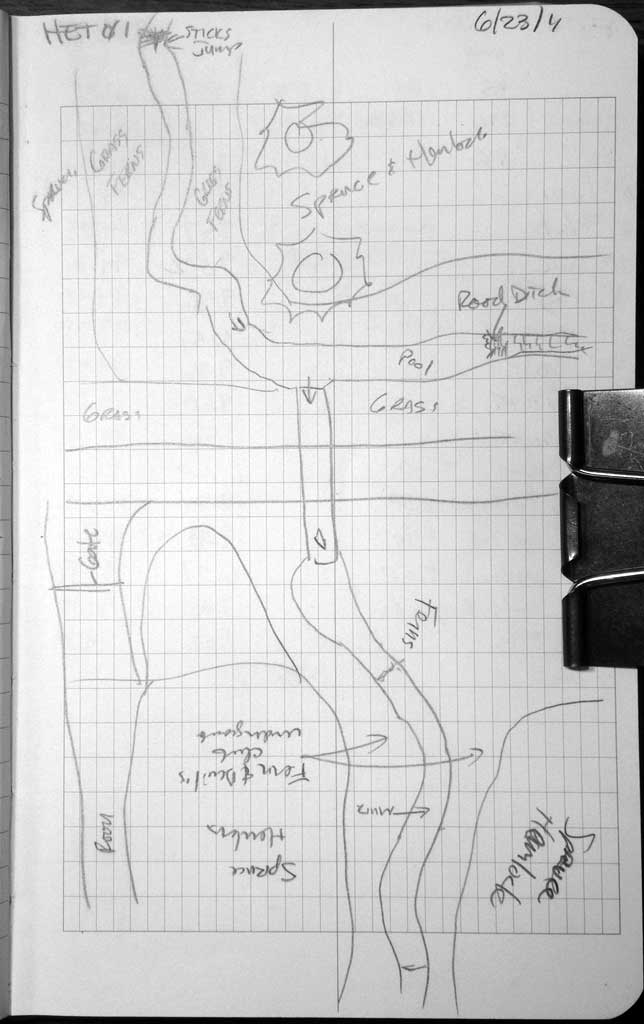 HET 01
6/23/14
STICKS
Jump
Spruce
GRASS
FERNS
GRASS
FERNS
Spruce & Hemlock
Road Ditch
Pool
GRASS
GRASS
Gate
Ferns
Fern & Devil's
club
Road
Spruce
Hemlock
Spruce
Hemlock